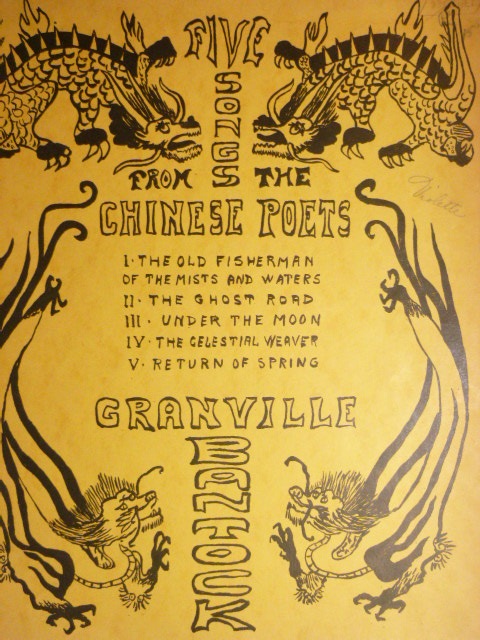 FIVE
SONGS
FROM THE
CHINESE POETS
I · THE OLD FISHERMAN
OF THE MISTS AND WATERS
II · THE GHOST ROAD
III · UNDER THE MOON
IV · THE CELESTIAL WEAVER
V · RETURN OF SPRING
GRANVILLE
BANTOCK